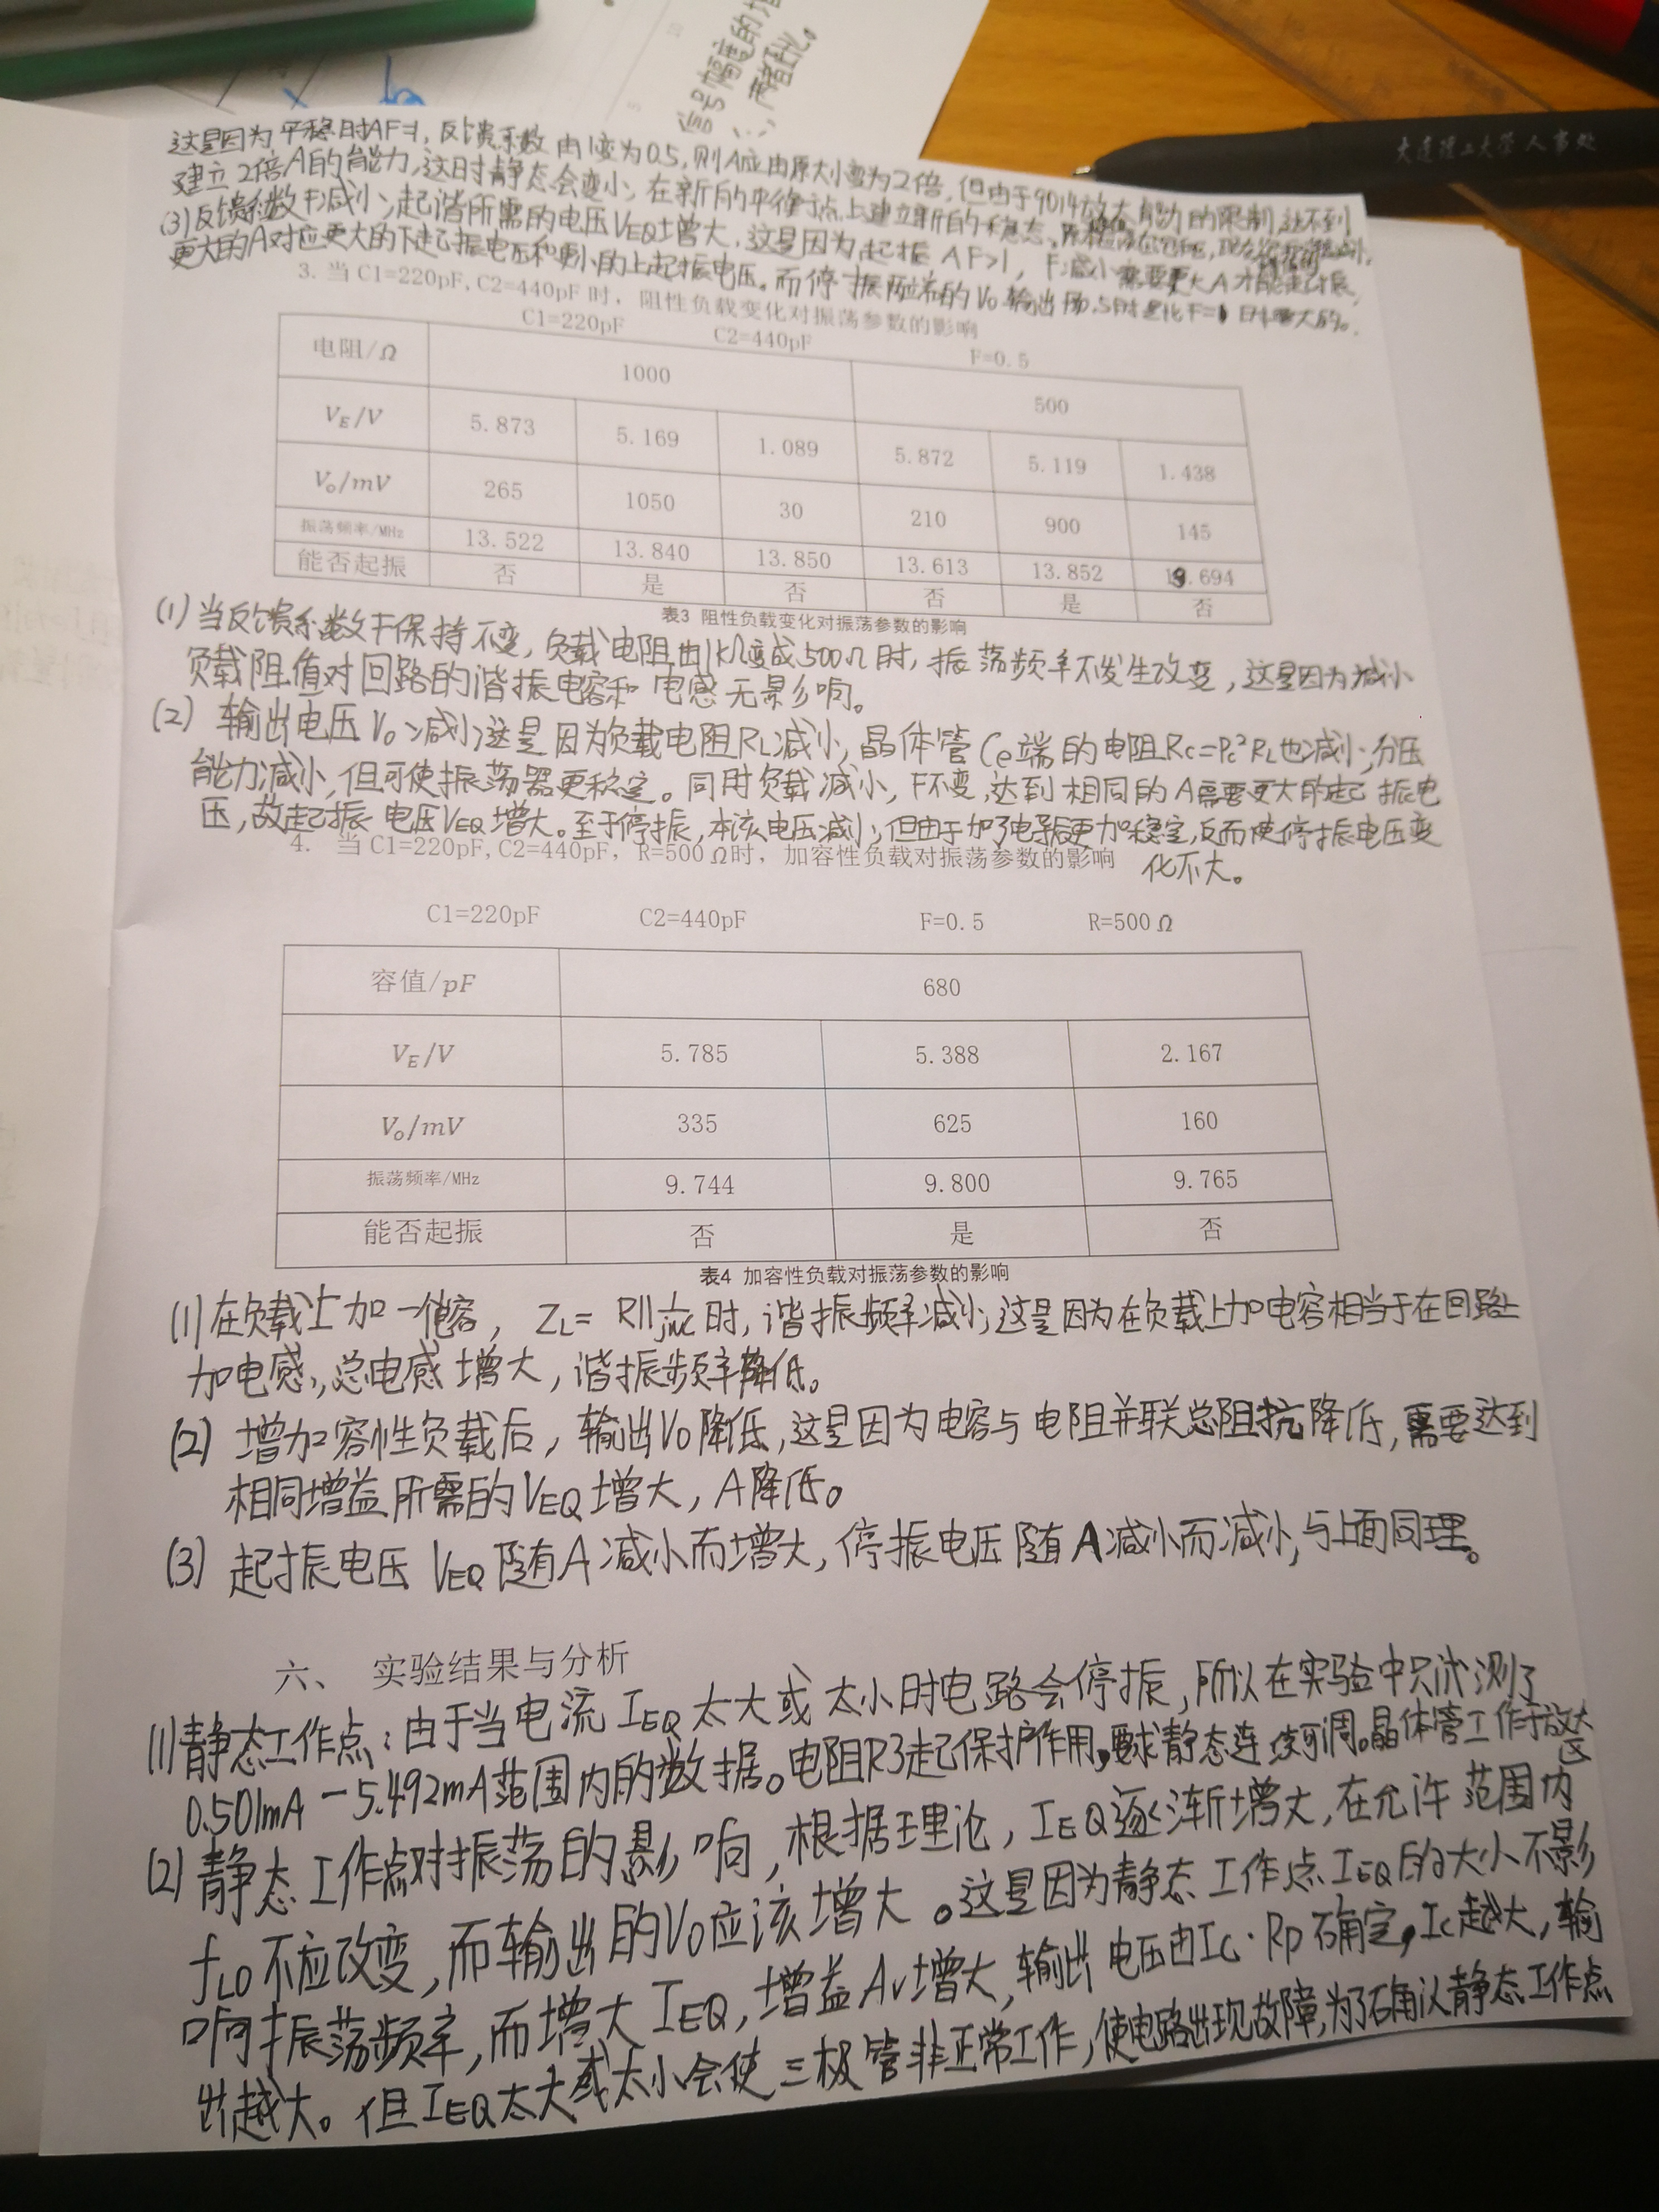 信号幅度的增
两者相比。
大连理工大学 人事处
这是因为平稳时AF=1,反馈系数由1变为0.5,则A应由原大小变为2倍,但由于9014放大能力的限制,达不到
建立2倍A的能力,这时静态会变小,在新的平衡点上建立新的平稳态。
(3)反馈系数F减小,起谐所需的电压VEQ增大,这是因为起振AF>1,F减小需要更大A才能起振,
更大的A对应更大的下起振电压和更小的上起振电压。而停振两端的Vo输出F=0.5时是比F=1时增大的。
3. 当 C1=220pF,C2=440pF 时,阻性负载变化对振荡参数的影响
C1=220pF C2=440pF F=0.5
电阻/Ω 1000 500
VE/V 5.873 5.169 1.089 5.872 5.119 1.438
Vo/mV 265 1050 30 210 900 145
振荡频率/MHz 13.522 13.840 13.850 13.613 13.852 .694
能否起振 否 是 否 否 是 否
表3 阻性负载变化对振荡参数的影响
(1)当反馈系数F保持不变,负载电阻由1KΩ变成500Ω时,振荡频率不发生改变,这是因为减小
负载阻值对回路的谐振电容和电感无影响。
(2) 输出电压Vo减小,这是因为负载电阻RL减小,晶体管Ce端的电阻Rc=Pc²RL也减小,分压
能力减小,但可使振荡器更稳定。同时负载减小,F不变,达到相同的A需要更大的起振电
压,故起振电压VEQ增大。至于停振,本该电压减小,但由于加了电导后更加稳定,反而使停振电压变
化不大。
4. 当 C1=220pF,C2=440pF,R=500Ω时,加容性负载对振荡参数的影响
C1=220pF C2=440pF F=0.5 R=500Ω
容值/pF 680
VE/V 5.785 5.388 2.167
Vo/mV 335 625 160
振荡频率/MHz 9.744 9.800 9.765
能否起振 否 是 否
表4 加容性负载对振荡参数的影响
(1)在负载上加一电容,ZL=R∥1/jwc时,谐振频率减小,这是因为在负载上加电容相当于在回路上
加电感,总电感增大,谐振频率降低。
(2) 增加容性负载后,输出Vo降低,这是因为电容与电阻并联总阻抗降低,需要达到
相同增益所需的VEQ增大,A降低。
(3) 起振电压VEQ随A减小而增大,停振电压随A减小而减小,与上面同理。
六、 实验结果与分析
(1)静态工作点:由于当电流IEQ太大或太小时电路会停振,所以在实验中只测了
0.501mA-5.492mA范围内的数据。电阻R3起保护作用,要求静态连续可调。晶体管工作于放大区
(2)静态工作点对振荡的影响,根据理论,IEQ逐渐增大,在允许范围内
fLO不应改变,而输出的Vo应该增大。这是因为静态工作点IEQ的大小不影
响振荡频率,而增大IEQ,增益Av增大,输出电压由Ic·Rp确定,Ic越大,输
出越大。但IEQ太大或太小会使三极管非正常工作,使电路出现故障,为了确认静态工作点